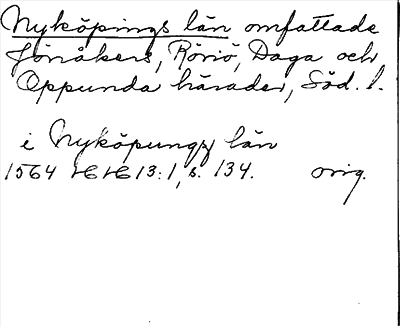 Nyköpings län omfattade
Jönåkers, Rönö, Daga och
Oppunda härader, Söd. l.
i Nyköpungz län
1564 HH 13:1, s. 134. orig.